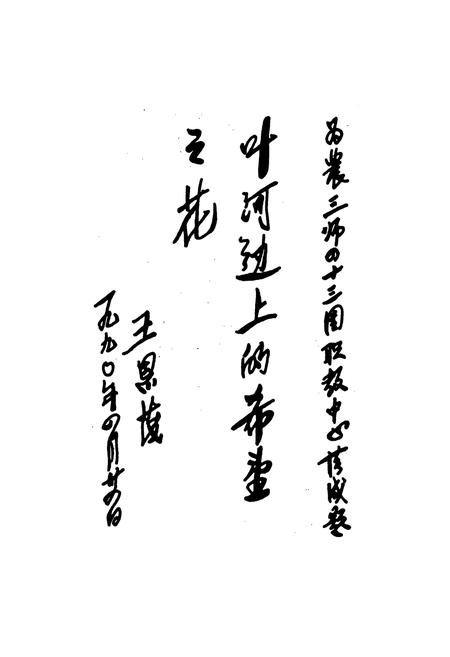 为农三师四十三团职教中心落成题
叶河边上的希望
之花
王恩茂
一九九〇年四月廿六日